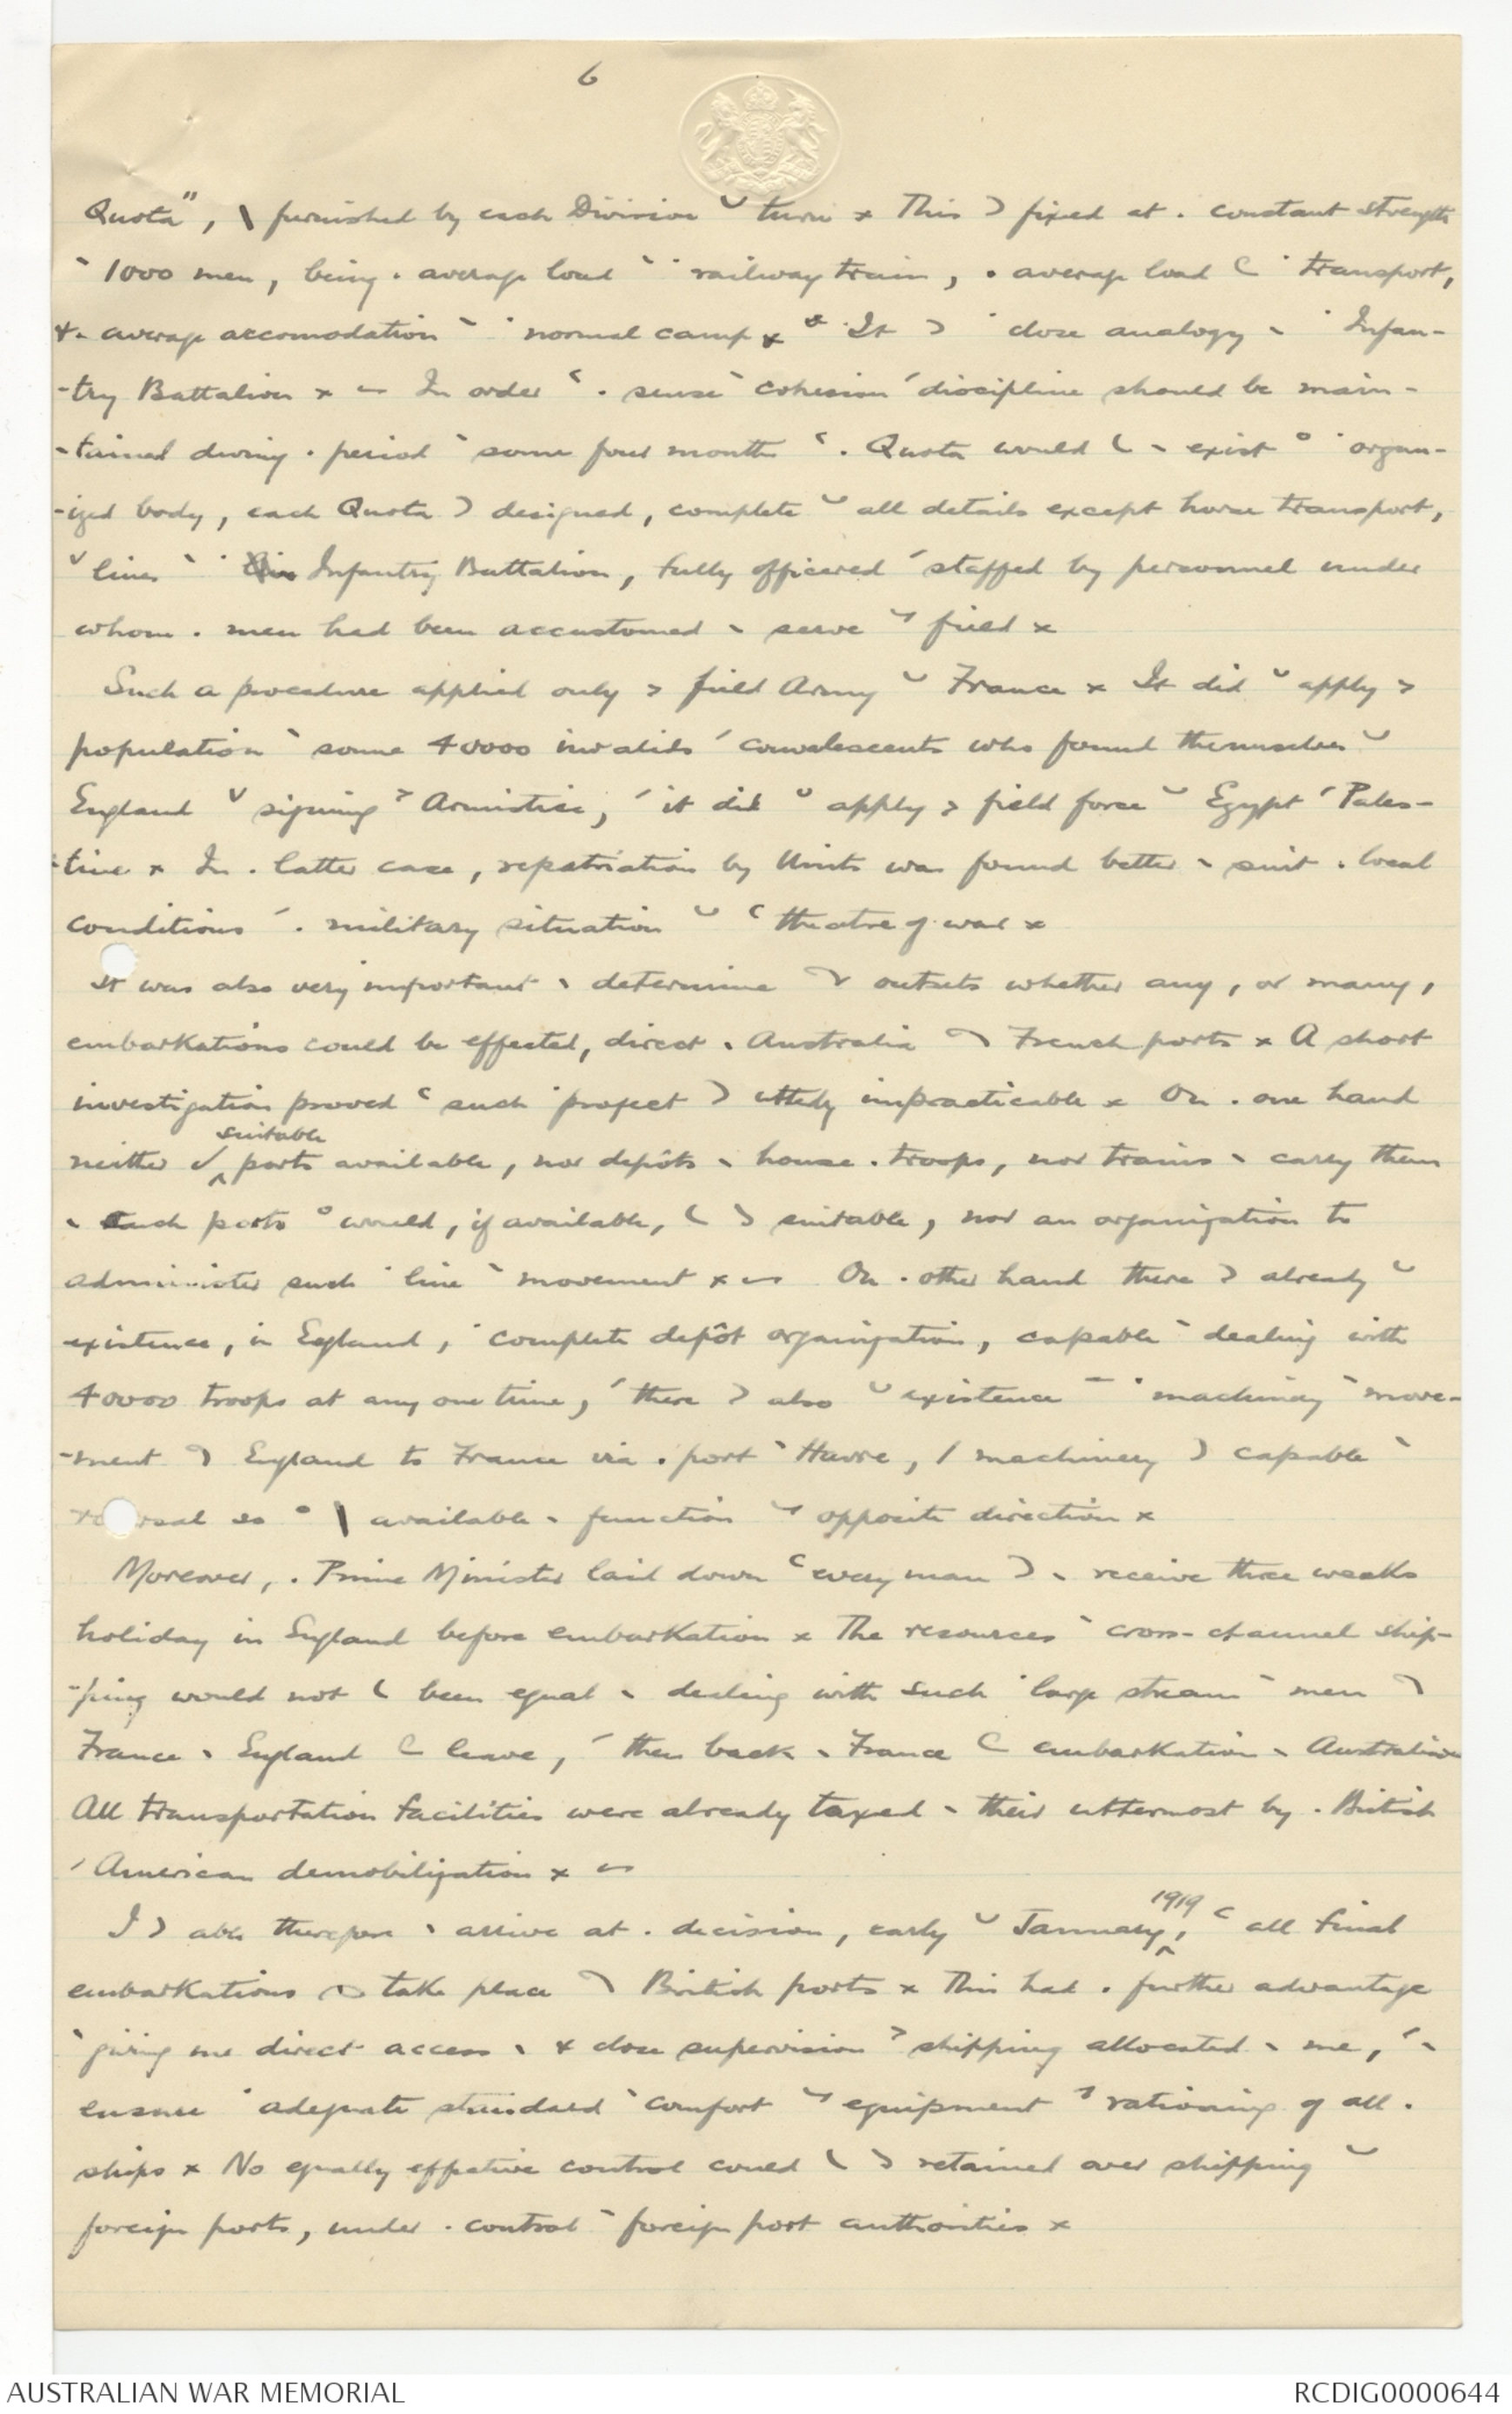 6
Quota", \ furnished by each Division ˘ turn x This ) fixed at . constant strength
` 1000 men, being . average load ` ˙ railway train, . average load ( ˙ transport,
& . average accomodation ` ˙ normal camp x It ) ˙ close analogy ` ˙ Infan-
-try Battalion x In order ‘ . sense ` cohesion ´ discipline should be main-
-tained during . period ` some four months ‘ . Quota would ( ` exist ° ˙ organ-
-ized body, each Quota ) designed, complete ˘ all details except horse transport,
ᵛ lines ` ˙ Infantry Battalion, fully officered ´ staffed by personnel under
whom . men had been accustomed ` serve ˘ field x
Such a procedure applied only > field Army ˘ France x It did ˘ apply >
population ` some 40000 invalids ´ convalescents who found themselves ˘
England ᵛ signing > Armistice, ´ it did ˘ apply > field force ˘ Egypt ´ Pales-
-tine x In . latter case, repatriation by Units was found better ` suit . local
conditions ´ . military situation ˘ ‘ theatre of war x
It was also very important ` determine outsets whether any, or many,
embarkations could be effected, direct ` Australia ) French ports x A short
investigation proved ‘ such ˙ project ) utterly impracticable x On . one hand
neither suitable ports available, nor depôts ` house . troops, nor trains ` carry them
` such ports ° would, if available, ( ) suitable, nor an organization to
administer such ˙ line ` movement x On . other hand there ) already ˘
existence, in England, ˙ complete depôt organization, capable ` dealing with
40000 troops at any one time, ´ there ) also ˘ existence ˙ machinery ` move-
-ment ) England to France via . port ` Havre, / machinery ) capable `
reversal so ° \ available ` function ˘ opposite direction x
Moreover, . Prime Minister laid down ‘ every man ) ` receive three weeks
holiday in England before embarkation x The resources ` cross-channel ship-
-ping would not ( been equal ` dealing with such ˙ large stream ` men )
France ` England ( leave, ´ then back ` France ( embarkation ` Australia
All transportation facilities were already taxed ` their uttermost by . British
´ American demobilization x
I ) able therefore ` arrive at . decision, early ˘ January, 1919 ‘ all final
embarkations take place ) British ports x This had . further advantage
` giving me direct access ` & close supervision > shipping allocated ` me, ´ `
ensure ˙ adequate standard ` comfort ˘ equipment ´ rationing of all .
ships x No equally effective control could ( ) retained over shipping ˘
foreign ports, under . control ` foreign port authorities x
AUSTRALIAN WAR MEMORIAL
RCDIG0000644